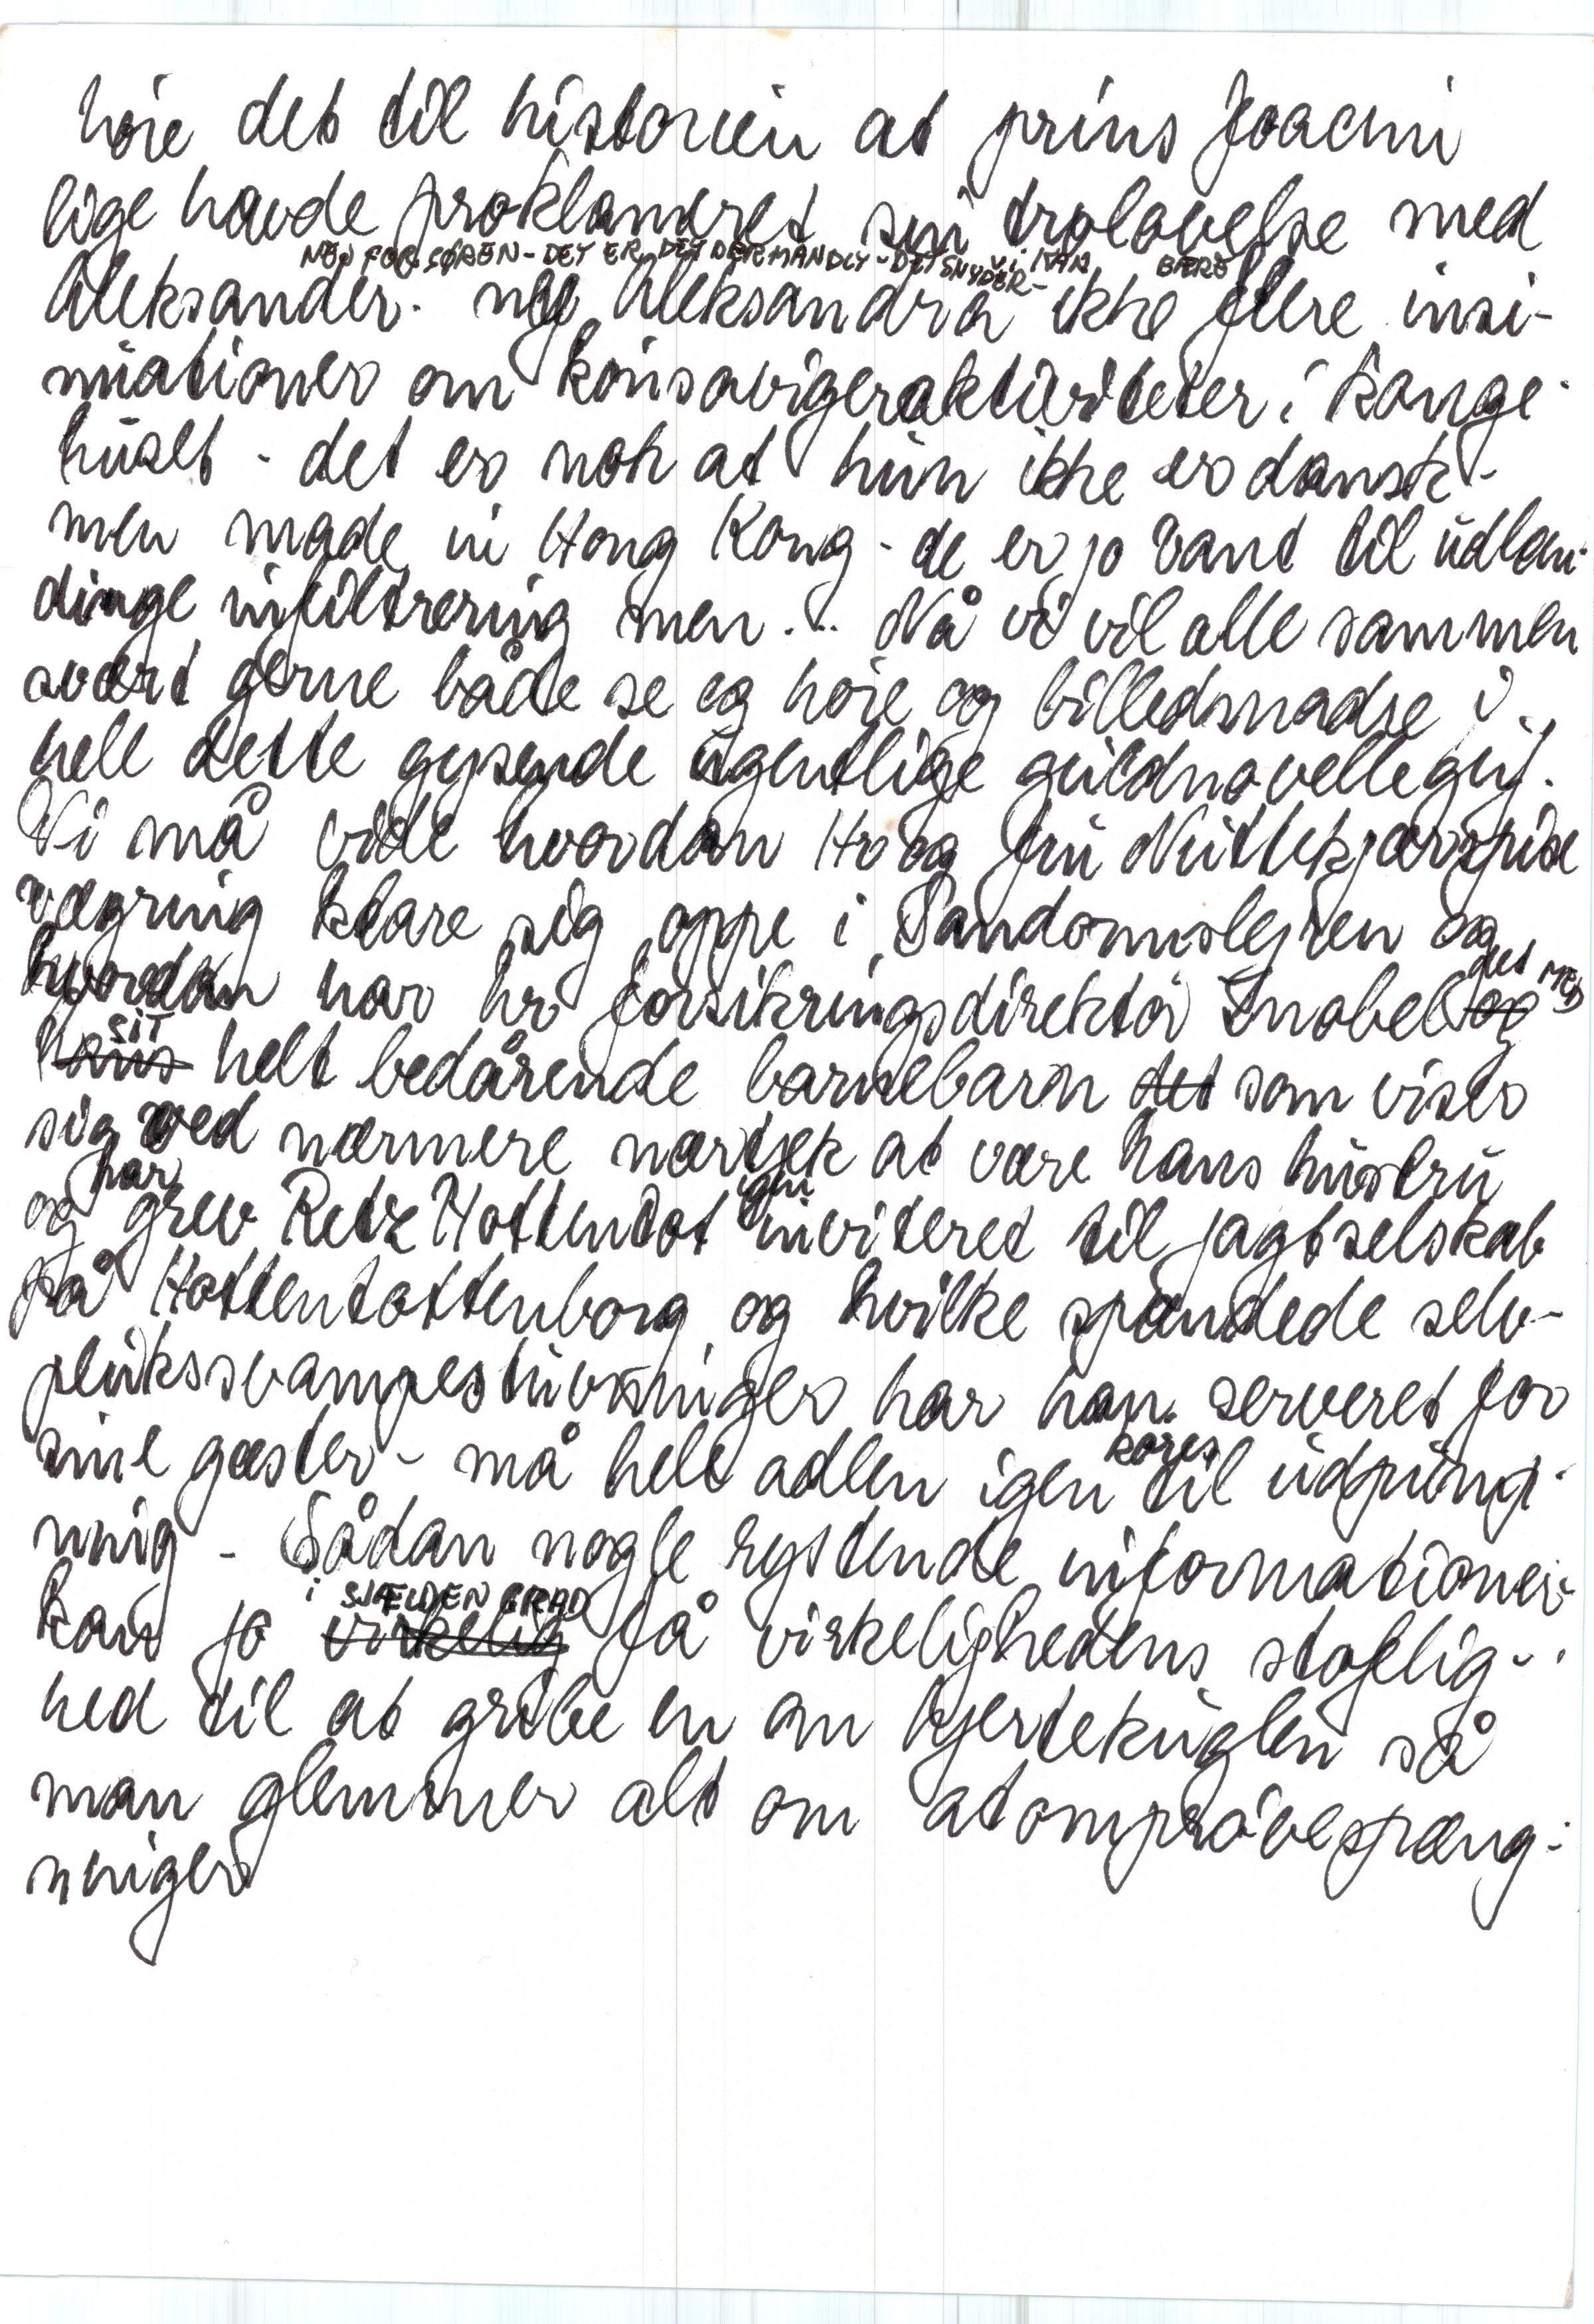 höre det til historien at prins Joacim
lige havde proklameret sin trolovelse med
NEJ FOR SØREN - DET ER DET DER MANDLY - DET SNYDER - VI KAN BÆRE
Aleksander. nej Aleksandra ikke flere insi-
nuationer om könsavigeraktiviteter i konge-
huset - det er nok at hun ikke er dansk -
men made in Hong Kong - de er jo vant til udlæn-
dinge infiltrering men... Nå vi vil alle sammen
svært gerne både se og höre og billedsmadse i
hele dette gysende ugentlige guldnovellegüf.
Vi må vide hvordan Hr og fru Nuttekjærspise
vægring klare sig oppe i Sandormslejren og
hvordan har hr forsikringsdirektör Znobel og det MED
hans SIT helt bedårende barnebarn det som viser
sig ved nærmere nærtjek at være hans hustru
og har grev Retz Hottentot igen inviteret til jagtselskab
på Hottentottenborg og hvilke spændede selv-
pluksvampestuvninger har han serveret for
sine gæster - må hele adlen igen köres til udpump-
ning - Sådan nogle rystende informationer
kan jo virkelig i SJÆLDEN GRAD få virkelighedens stoflig-
hed til at gribe en om hjertekuglen så
man glemmer alt om atomprövespræng-
ninger